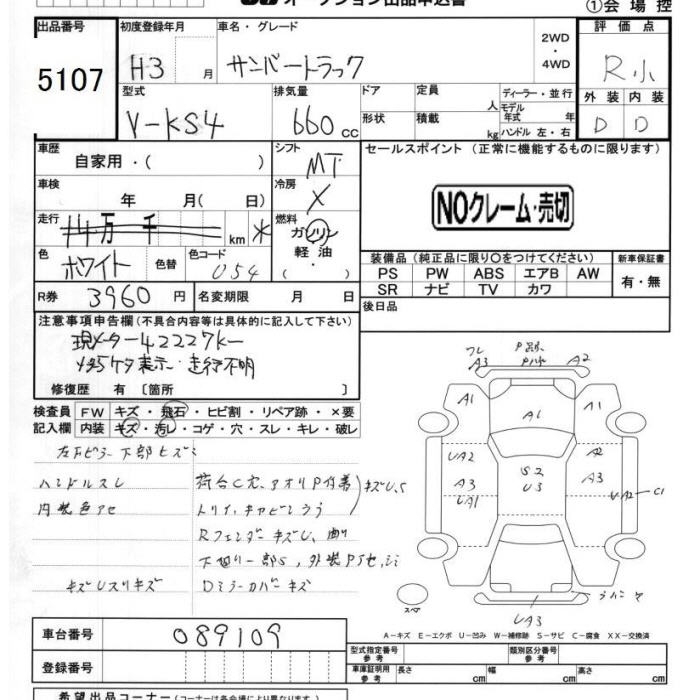 オークション出品申込書
①会場控
出品番号 初度登録年月 車名・グレード 2WD・4WD 評価点
5107 H3 月 サンバートラック R小
型式 排気量 ドア 定員 人 ディーラー・並行 外装 内装
V-KS4 660 cc 形状 積載 kg モデル年式 年 ハンドル 左・右 D D
車歴 自家用・( ) シフト MT セールスポイント (正常に機能するものに限ります)
車検 年 月( 日) 冷房 X
NOクレーム・売切
走行 万 千 km 燃料 ガソリン 軽油 ( ・ )
色 ホワイト 色替 色コード U54
装備品 (純正品に限り〇をつけてください) 新車保証書
PS PW ABS エアB AW 有・無
SR ナビ TV カワ
R券 3960 円 名変期限 月 日 後日品
注意事項申告欄 (不具合内容等は具体的に記入して下さい)
現メーター42227k
メーター5ケタ表示・走行不明
修復歴 有 〔箇所 〕
検査員 FW キズ・飛石・ヒビ割・リペア跡・×要
記入欄 内装 キズ・汚レ・コゲ・穴・スレ・キレ・破レ
左下ピラー下部ヒズミ
ハンドルスレ 荷台C穴、アオリP付着 キズU、S
内装色アセ
RフェンダーキズU、曲り
下回り一部S、
キズUスリキズ Dミラーカバーキズ
A3 A2
A1 A1 A1
UA2 A2
A3 S2 A3
UA1 U3 UA2 C1
スペア
UA3
A-キズ E-エクボ U-凹み W-補修跡 S-サビ C-腐食 XX-交換済
車台番号 089109
型式指定番号 参考 類別区分番号 参考
登録番号 車庫証明用 参考 長さ cm 幅 cm 高さ cm
希望出品コーナー (コーナーは各会場により異なります)